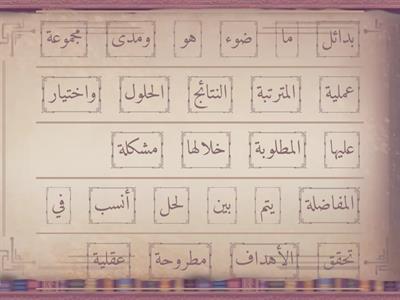 بدائل ما ضوء هو ومدى مجموعة
عملية المترتبة النتائج الحلول واختيار
عليها المطلوبة خلالها مشكلة
المفاضلة يتم بين لحل أنسب في
تحقق الأهداف مطروحة عقلية